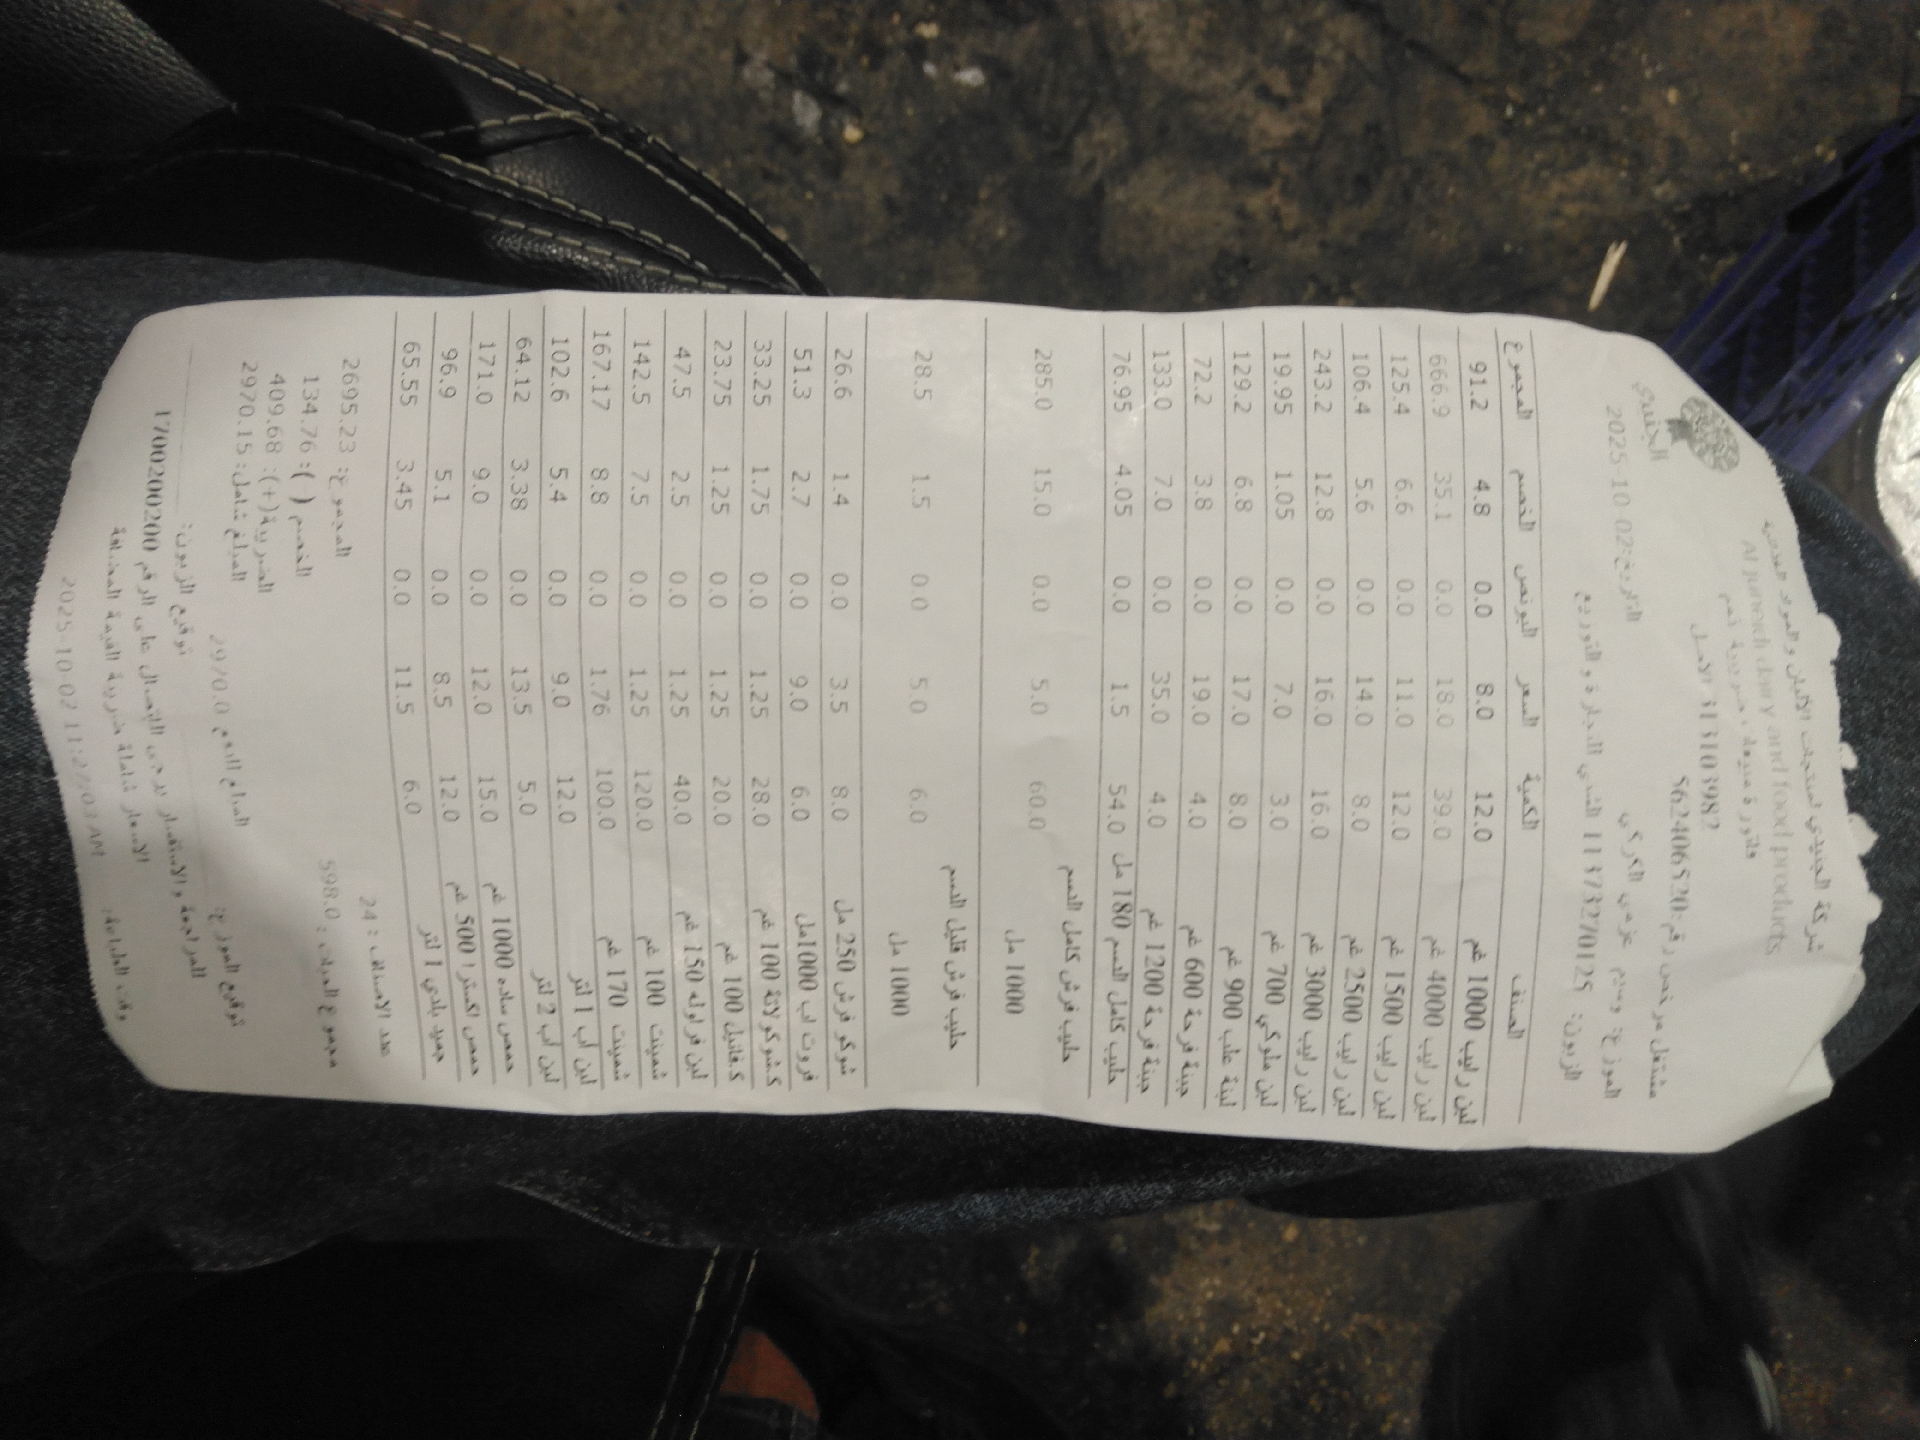 شركة الجنيدي لمنتجات الألبان والمواد الغذائية
Al juneidi dairy and food products
فاتورة مبيعات ضريبية
313103982 الاصل
مشتغل مرخص رقم: 562406520
الجنيدي
الموزع: وسيم عزمي الكركي
التاريخ: 2025-10-02
الزبون: 1137327012S الشني التجارة والتوزيع
الصنف الكمية السعر البونص الخصم المجموع
لبن رايب 1000 غم 12.0 8.0 0.0 4.8 91.2
لبن رايب 4000 غم 39.0 18.0 0.0 35.1 666.9
لبن رايب 1500 غم 12.0 11.0 0.0 6.6 125.4
لبن رايب 2500 غم 8.0 14.0 0.0 5.6 106.4
لبن رايب 3000 غم 16.0 16.0 0.0 12.8 243.2
لبن ملوكي 700 غم 3.0 7.0 0.0 1.05 19.95
لبنة علب 900 غم 8.0 17.0 0.0 6.8 129.2
جبنة فرحة 600 غم 4.0 19.0 0.0 3.8 72.2
جبنة فرحة 1200 غم 4.0 35.0 0.0 7.0 133.0
حليب كامل الدسم 180 مل 54.0 1.5 0.0 4.05 76.95
حليب فرش كامل الدسم
1000 مل 60.0 5.0 0.0 15.0 285.0
حليب فرش قليل الدسم
1000 مل 6.0 5.0 0.0 1.5 28.5
شوكو فرش 250 مل 8.0 3.5 0.0 1.4 26.6
فروت اب 1000مل 6.0 9.0 0.0 2.7 51.3
ك.شوكولاتة 100 غم 28.0 1.25 0.0 1.75 33.25
ك.فانيل 100 غم 20.0 1.25 0.0 1.25 23.75
لبن فراوله 150 غم 40.0 1.25 0.0 2.5 47.5
شمينت 100 غم 120.0 1.25 0.0 7.5 142.5
شمينت 170 غم 100.0 1.76 0.0 8.8 167.17
لبن اب 1 لتر 12.0 9.0 0.0 5.4 102.6
لبن اب 2 لتر 5.0 13.5 0.0 3.38 64.12
حمص ساده 1000 غم 15.0 12.0 0.0 9.0 171.0
حمص اكسترا 500 غم 12.0 8.5 0.0 5.1 96.9
جميد بلدي 1 لتر 6.0 11.5 0.0 3.45 65.55
عدد الاصناف : 24
المجموع: 2695.23
مجموع الحبات : 598.0
الخصم ( ): 134.76
الضريبة(+): 409.68
المبلغ شامل: 2970.15
المبلغ للدفع 2970.0
توقيع الموزع:
توقيع الزبون:
للمراجعة والاستفسار يرجى الاتصال على الرقم 1700200200
الاسعار شاملة ضريبة القيمة المضافة
وقت الطباعة: 2025-10-02 11:27:03 AM